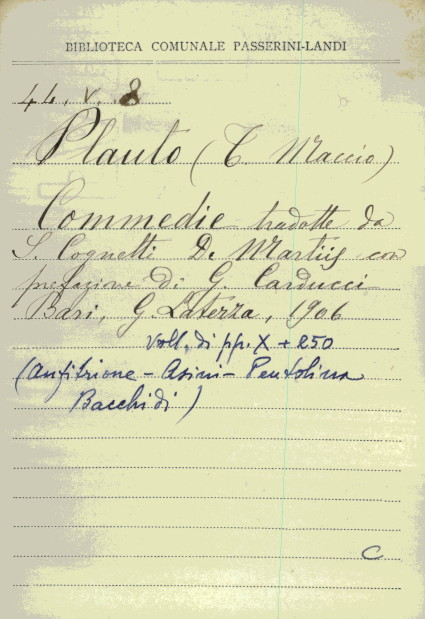 BIBLIOTECA COMUNALE PASSERINI-LANDI
44. V. 8
Plauto (T. Maccio)
Commedie tradotte da
S. Cognetti De Martiis con
prefazione di G. Carducci
Bari, G. Laterza, 1906
Voll. di pp. X + 250
(Anfitrione - Asini - Pentolina
Bacchidi)
C